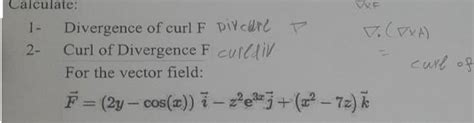 Calculate:
∇×F
1- Divergence of curl F Div curl ∇ ∇·(∇×A)
2- Curl of Divergence F curl div =
curl of
For the vector field:
F⃗ = (2y − cos(x)) i⃗ − z²e³ˣ j⃗ + (x² − 7z) k⃗